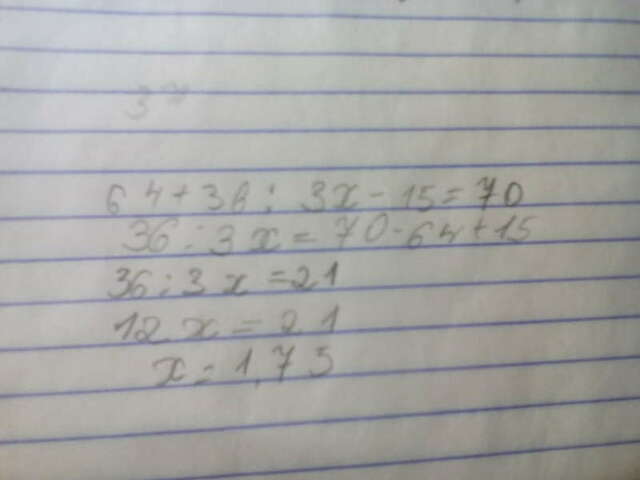 3x
64+36: 3x-15=70
36:3x=70-64+15
36:3x=21
12x=21
x=1,75